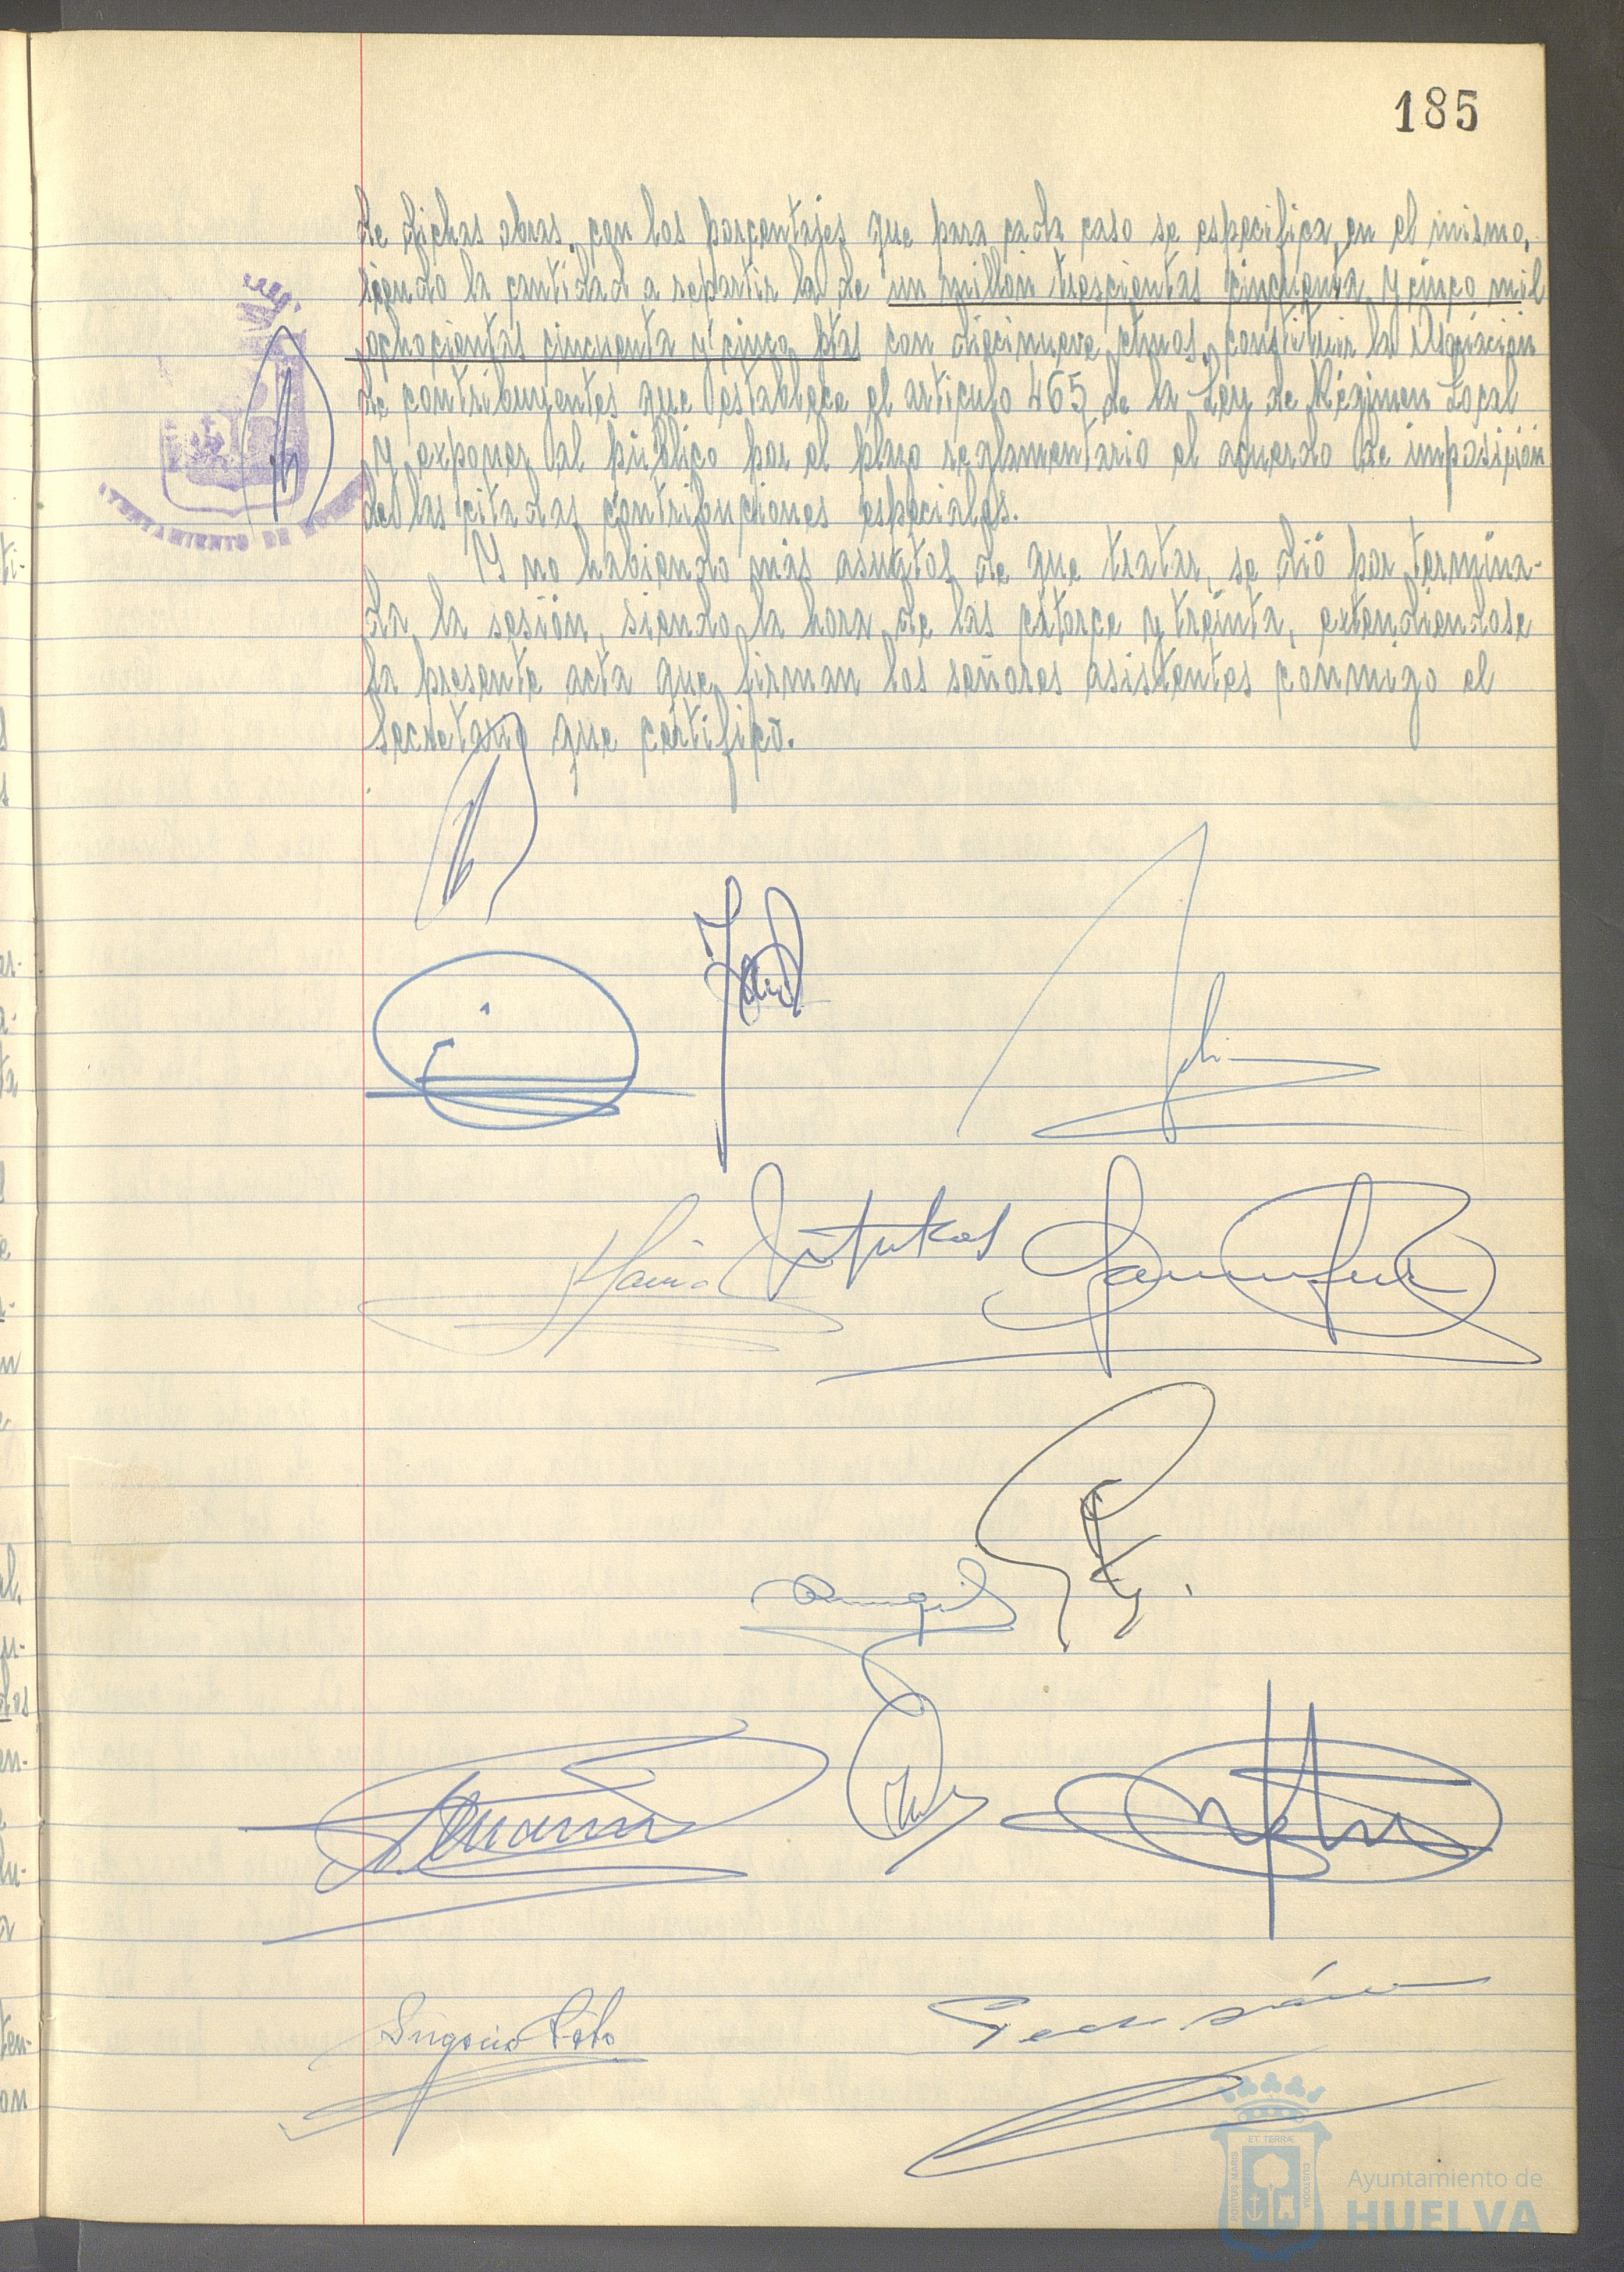 185
de dichas obras, con los porcentajes que para cada caso se especifica, en el mismo,
siendo la cantidad a repartir la de un millón trescientas cincuenta y cinco mil
ochocientas cincuenta y cinco ptas con diecinueve ctmos, constituir la Asociación
de contribuyentes que establece el artículo 465 de la Ley de Régimen Local
y exponer al público por el plazo reglamentario el acuerdo de imposición
de las citadas contribuciones especiales.
Y no habiendo más asuntos de que tratar, se dió por termina-
da, la sesión, siendo la hora de las catorce y treinta, extendiendose
la presente acta que firman los señores asistentes conmigo el
Secretario que certifico.
AYUNTAMIENTO DE HUELVA
PORTUS MARIS
ET TERRÆ
CUSTODIA
Ayuntamiento de
HUELVA